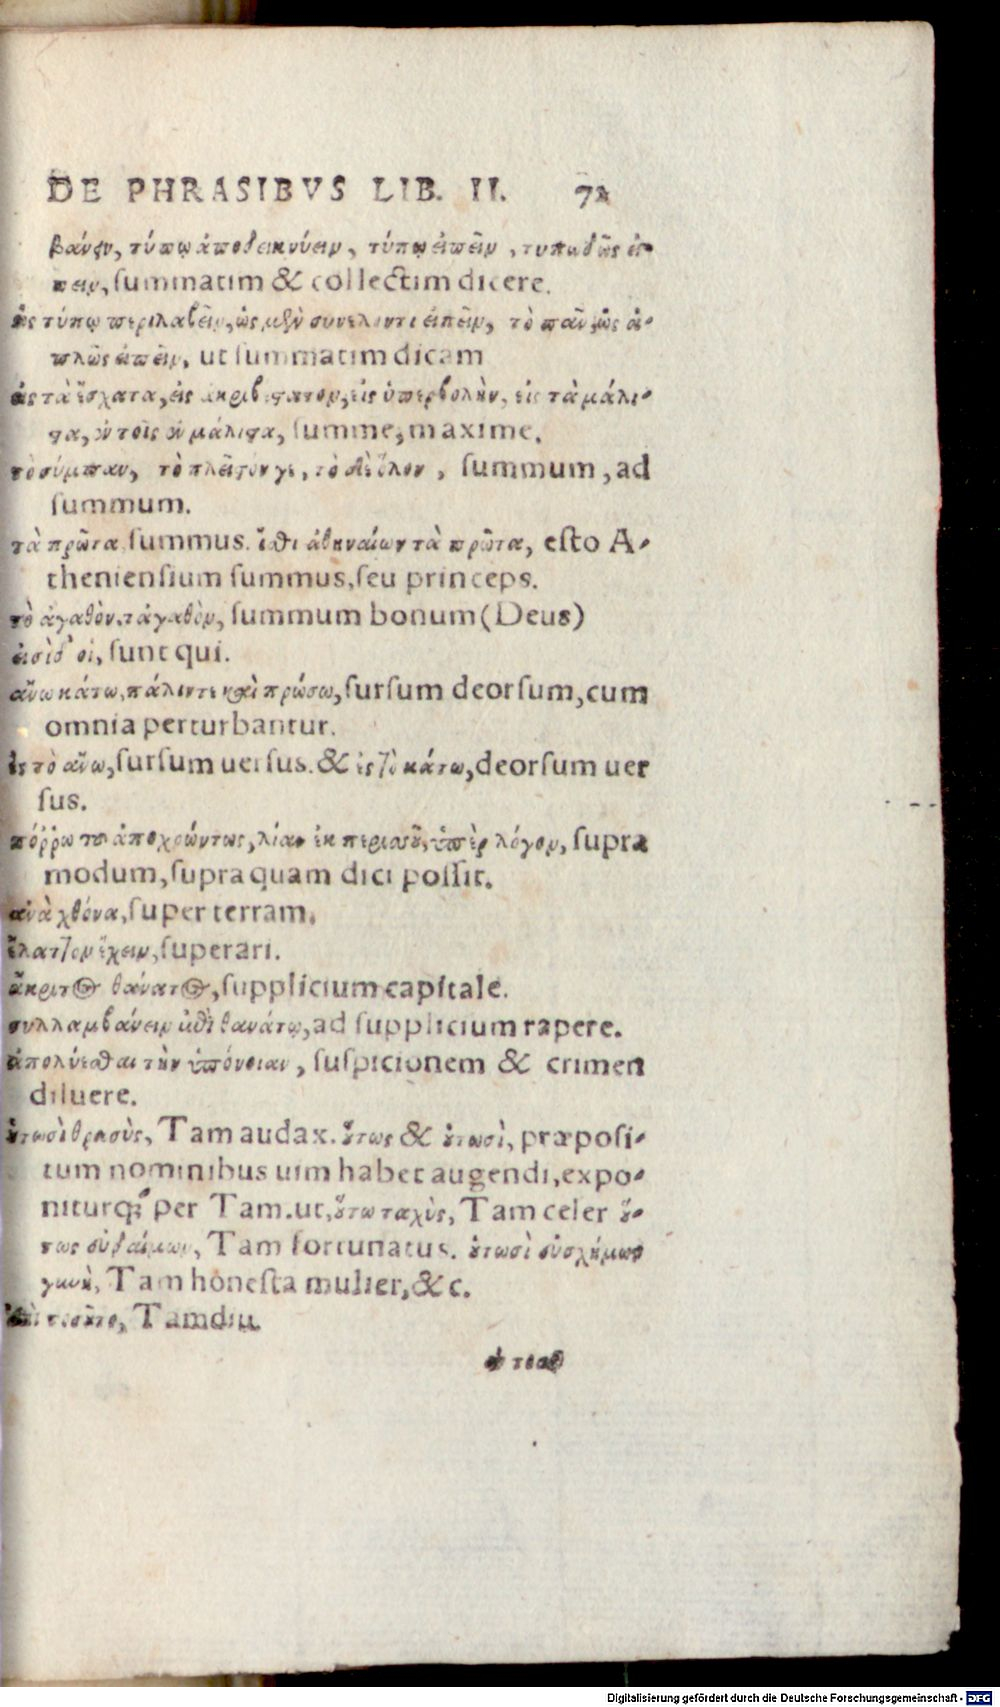 DE PHRASIBVS LIB. II. 72
τύπῳ ἀποδεικνύειν, τύπῳ εἰπεῖν, τυπωδῶς εἰ-
πειν, summatim & collectim dicere.
ὡς τύπῳ περιλαβεῖν, ὡς συνελόντι εἰπεῖν, τὸ πᾶν ὡς ἁ-
πλῶς εἰπεῖν, ut summatim dicam
εἰς τὰ ἔσχατα, εἰς εἰς ὑπερβολὴν, εἰς τὰ μάλι-
ϛα, ἐν τοῖς μάλιϛα, summe, maxime.
τὸ σύμπαν, τὸ πλεῖϛόν γε, τὸ ὅλον, summum, ad
summum.
τὰ πρῶτα summus. ἴσθι ἀθηναίων τὰ πρῶτα, esto A-
theniensium summus, seu princeps.
τὸ ἀγαθὸν, τἀγαθὸν, summum bonum (Deus)
εἰσὶδ' οἱ, sunt qui.
ἄνω κάτω, πάλιν τε καὶ πρόσω, sursum deorsum, cum
omnia perturbantur.
εἰς τὸ ἄνω, sursum uersus. & εἰς τὸ κάτω, deorsum uer
sus.
πόῤῥω τοῦ ἀποχρώντως, λίαν ἐκ περισσοῦ, ὑπὲρ λόγον, supra
modum, supra quam dici possit.
ἀνὰ χθόνα, super terram.
ἔλαττον ἔχειν, superari.
ἄκριτος θάνατος, supplicium capitale.
συλλαμβάνειν ἐπὶ θανάτῳ, ad supplicium rapere.
ἀπολύεσθαι τὴν ὑπόνοιαν, suspicionem & crimen
diluere.
ὁτωσὶ θρασὺς, Tam audax. ὅτως & ὁτωσὶ, præposi-
tum nominibus uim habet augendi, expo-
niturq; per Tam. ut, ὅτω ταχὺς, Tam celer ὅ-
τως εὐδαίμων, Tam fortunatus. ὁτωσὶ εὐσχήμων
γυνὴ, Tam honesta mulier, &c.
Tamdiu.
Digitalisierung gefördert durch die Deutsche Forschungsgemeinschaft - DFG